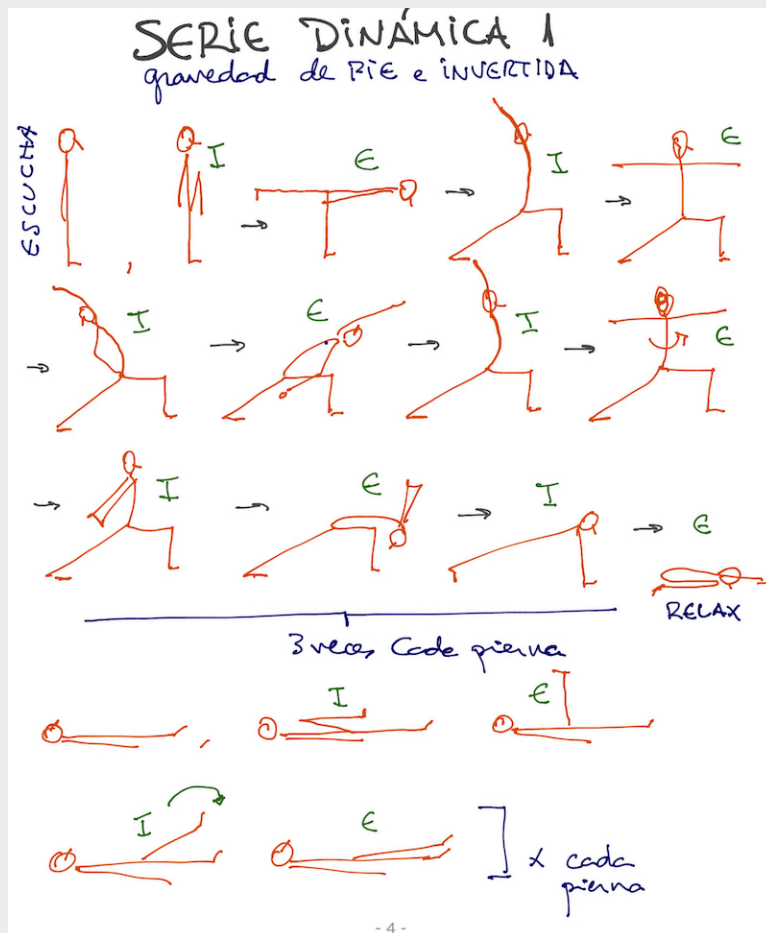 SERIE DINÁMICA 1
gravedad de PIE e INVERTIDA
ESCUCHA
I
E
I
E
I
E
I
E
I
E
I
E
RELAX
3 veces Cada pierna
I
E
I
E
x cada
pierna
- 4 -